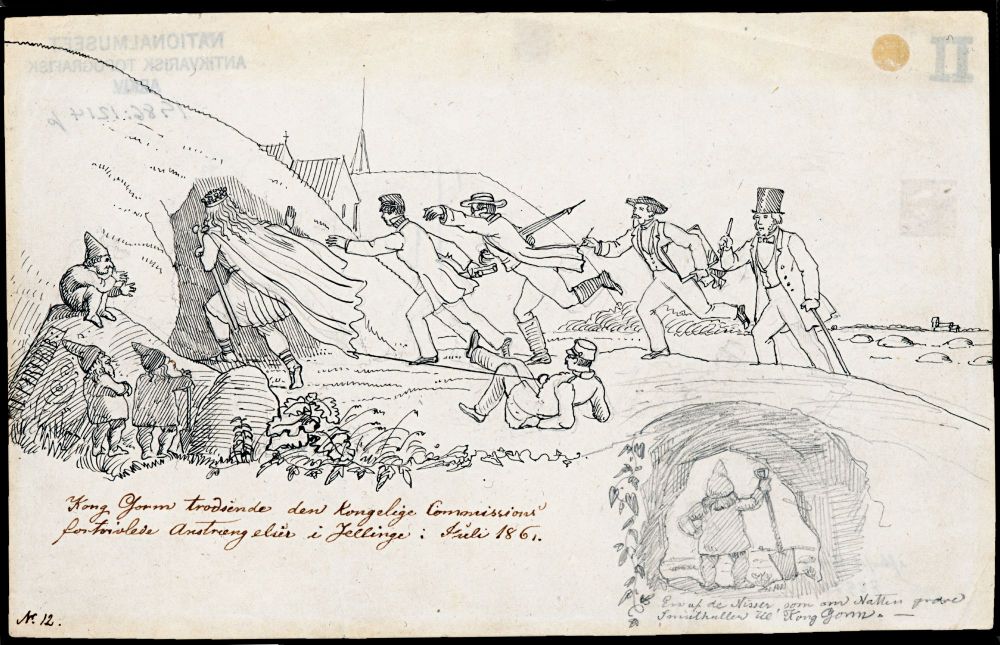 NATIONALMUSEET
ANTIKVARISK TOPOGRAFISK
ARKIV
II
Kong Gorm trodsende den kongelige Commissions'
fortvivlede Anstrængelser i Jellinge: Juli 1861.
En af de Nisser, som om Natten grave
Smuthuller til Kong Gorm. —
Nr. 12.